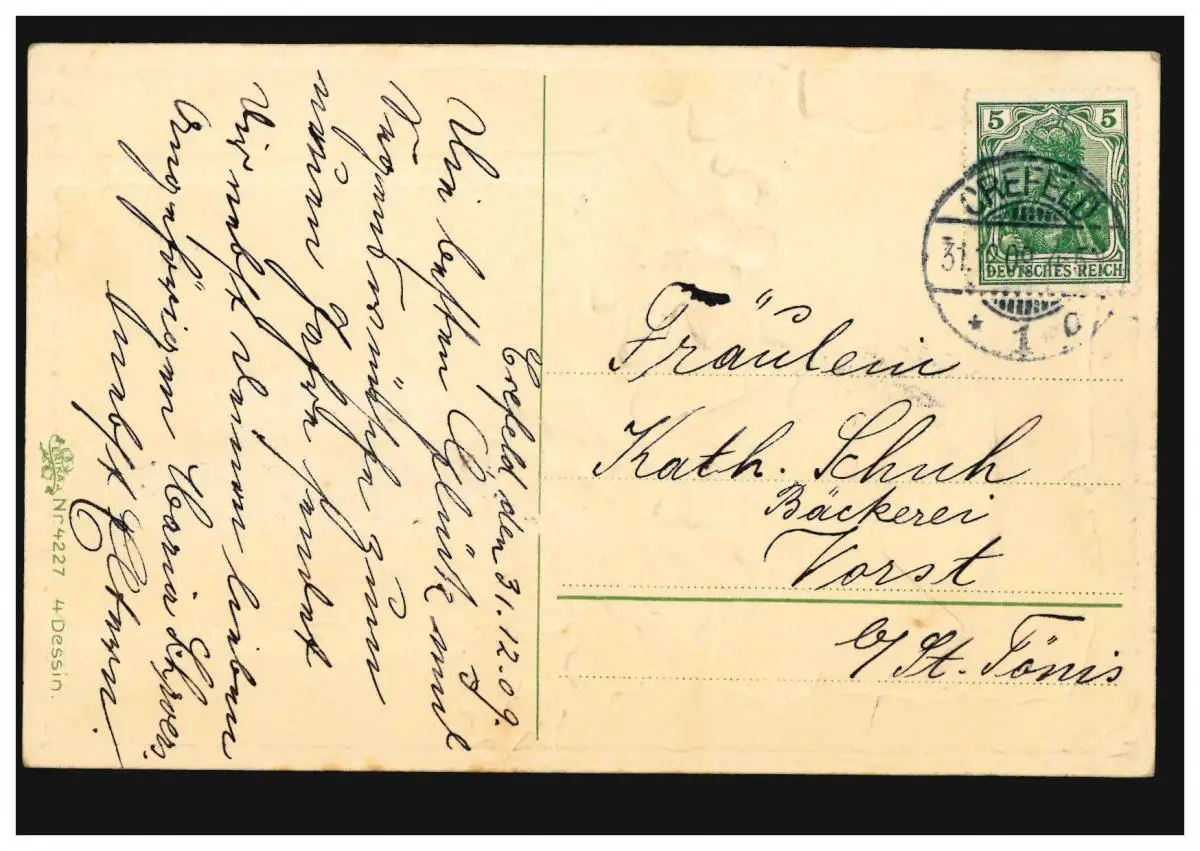 Crefeld, den 31.12.09.
Die besten Glück und
Segenswünsche zum
neuen Jahre sendet
Dir nebst deinen lieben
Angehörigen Maria Schroers
nebst Eltern.
ERIKA
Nr. 4227 4 Dessin.
5 5
DEUTSCHES REICH
CREFELD
31.12.09
* 1
Fräulein
Kath. Schuh
Bäckerei
Vorst
b/ St. Tönis